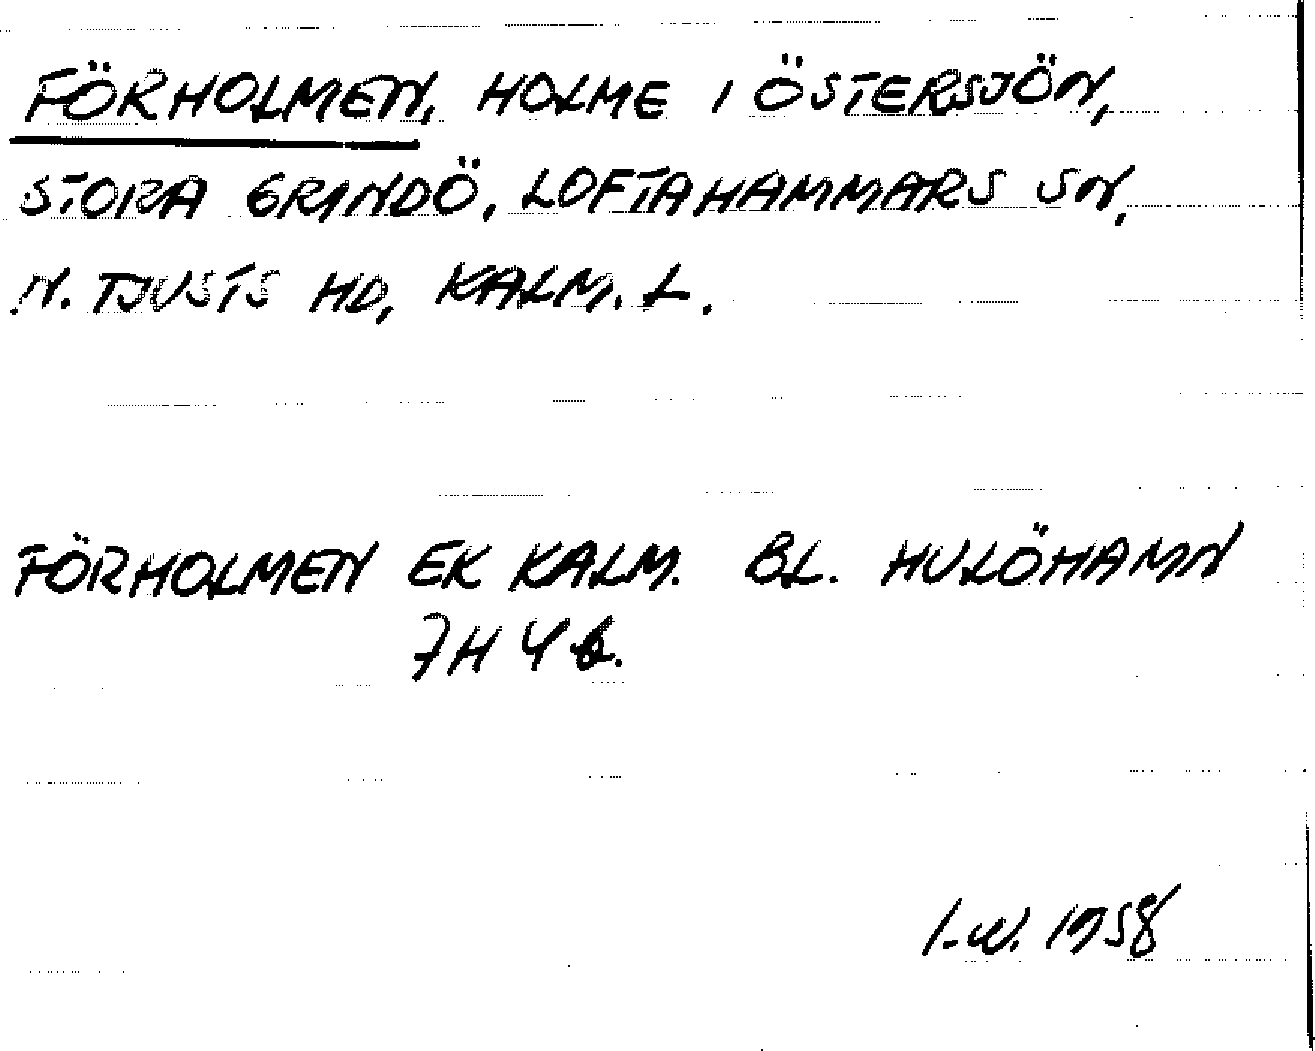 FÖRHOLMEN, HOLME I ÖSTERSJÖN,
STORA GRINDÖ, LOFTAHAMMARS SN,
N. TJUSTS HD, KALM. L.
FÖRHOLMEN EK KALM. BL. HULÖHAMN
7H 4b.
I-w. 1958